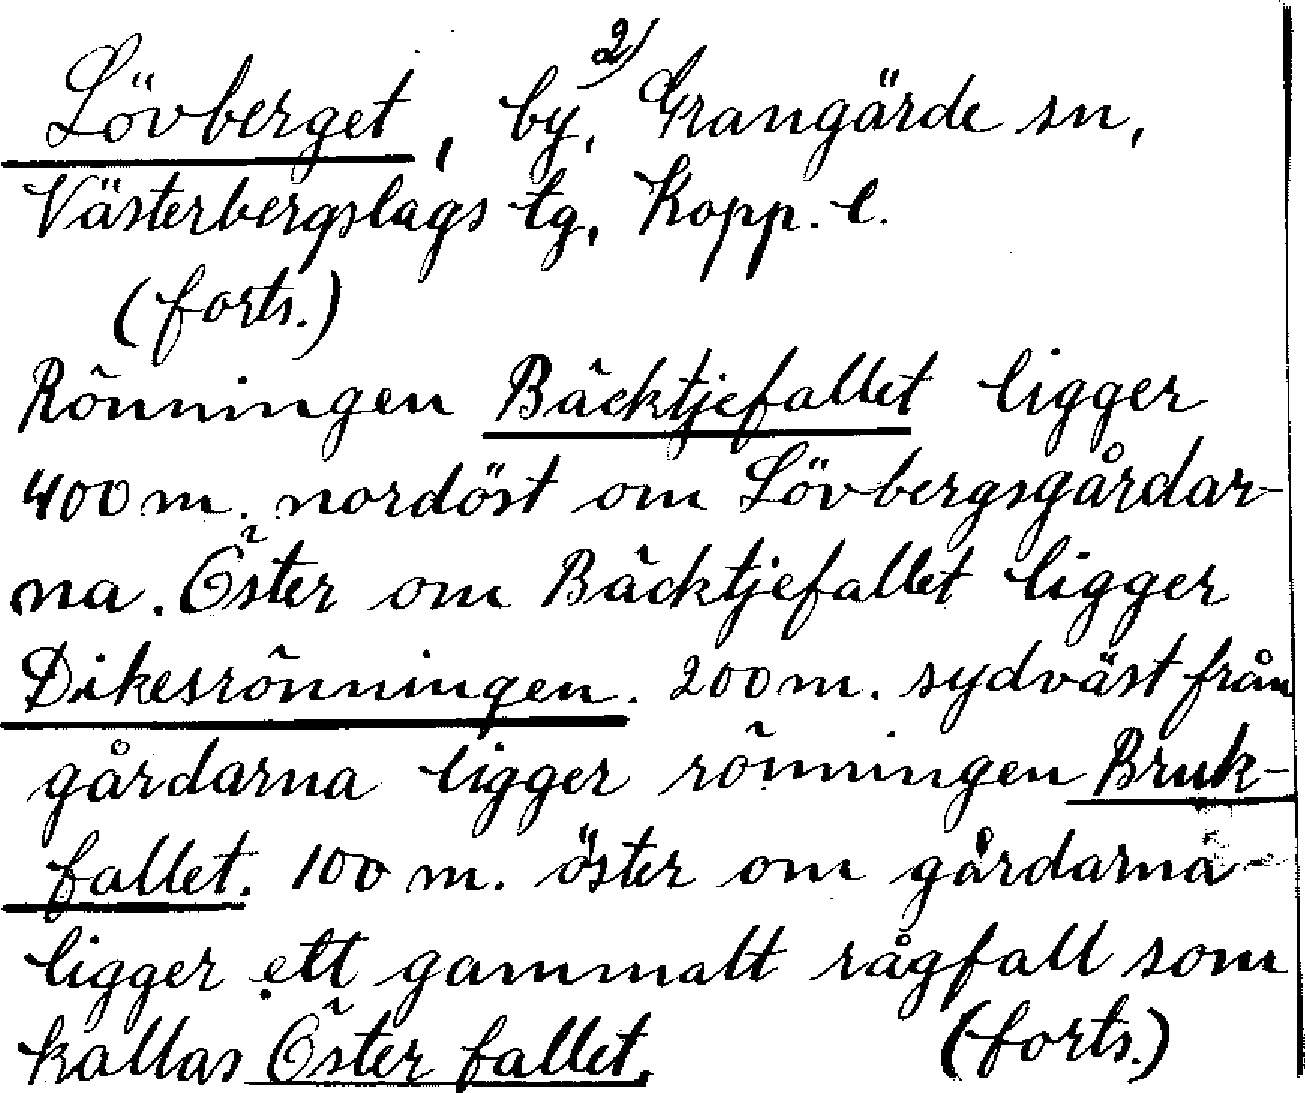 2)
Lövberget, by, Grangärde sn,
Västerbergslags tg, Kopp. l.
(forts.)
Rönningen Bäcktjefallet ligger
400 m. nordöst om Lövbergsgårdar-
na. Öster om Bäcktjefallet ligger
Dikesrönningen. 200 m. sydväst från
gårdarna ligger rönningen Bruk-
fallet. 100 m. öster om gårdarna
ligger ett gammalt rågfall som
kallas Öster fallet. (forts.)